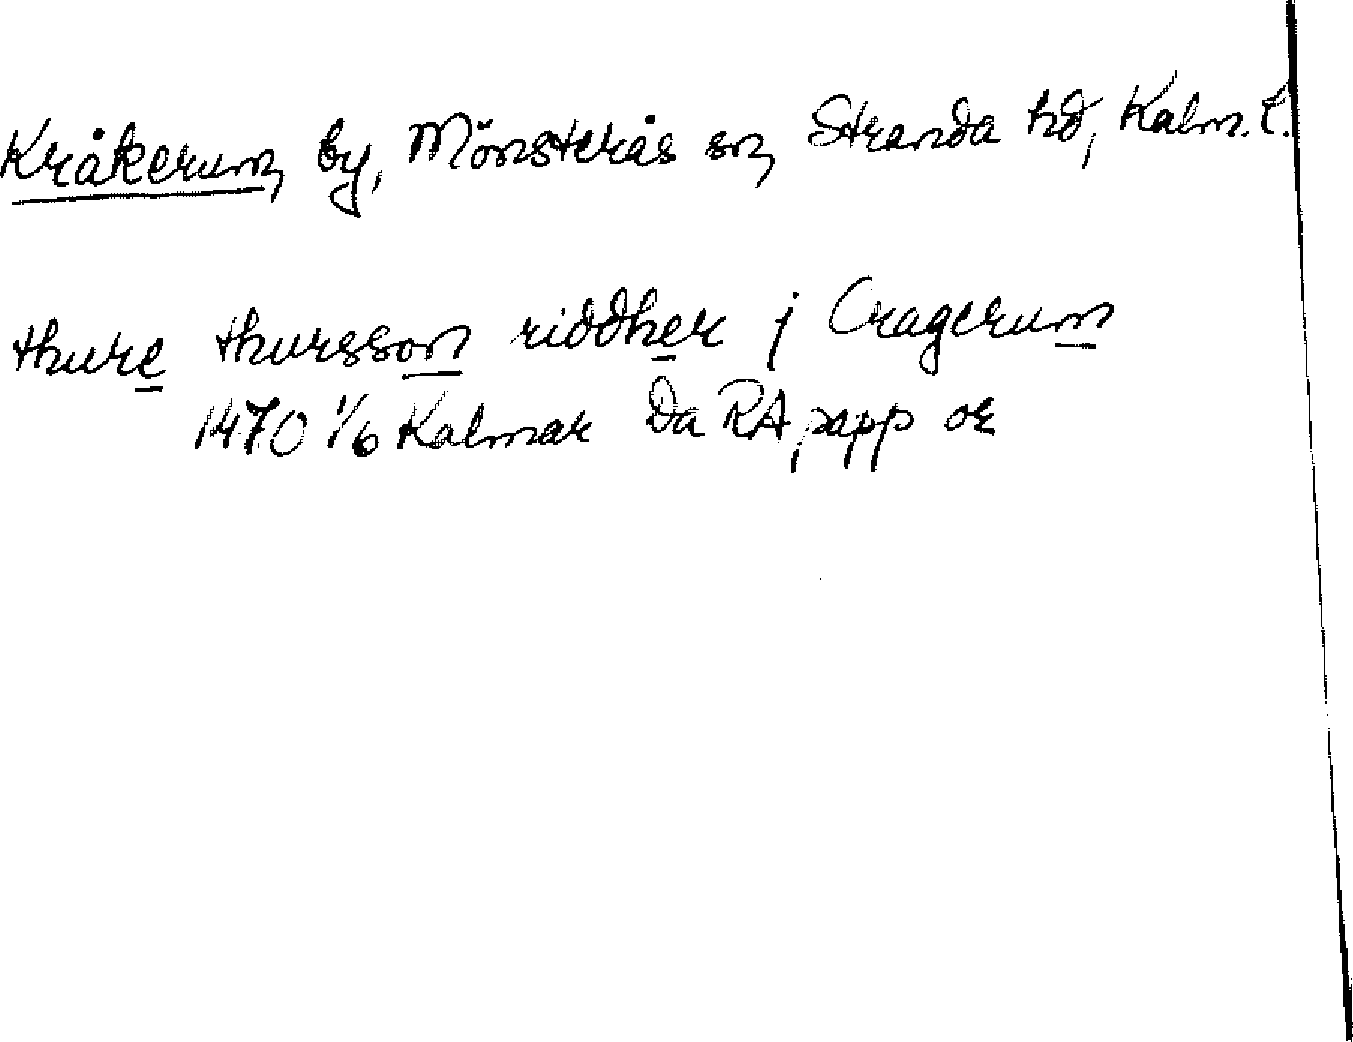 Kråkerum, by, Mönsterås sn, Stranda hd, Kalm. l.
thure thursson riddher j Cragerum
1470 1/6 Kalmar Da RA, papp or